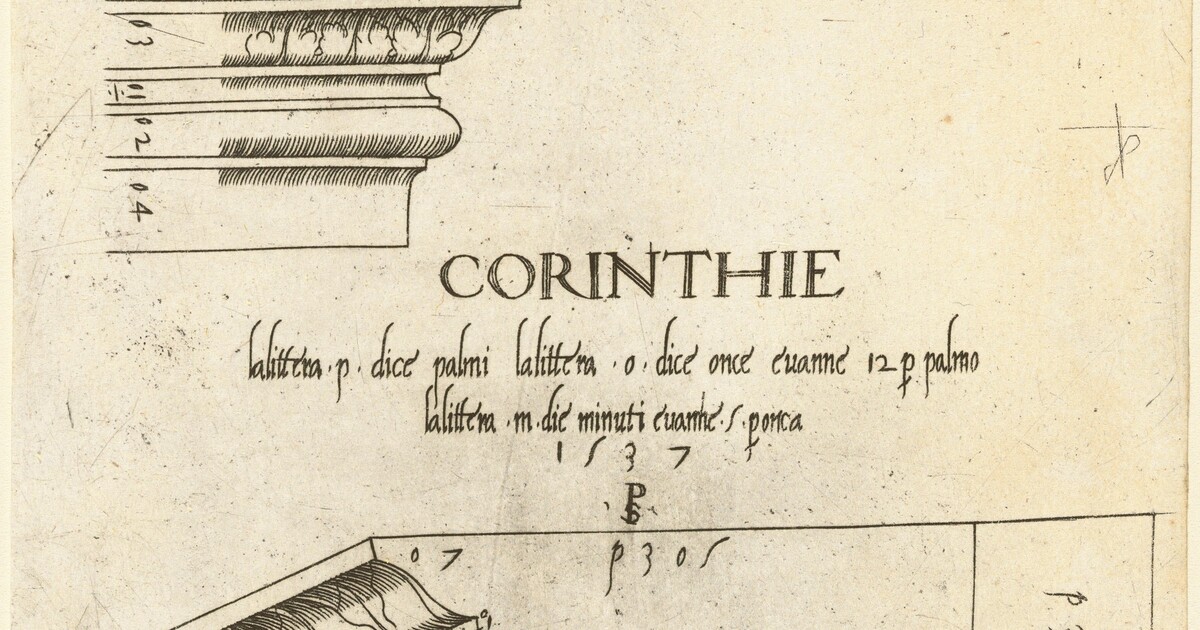 03
02
04
CORINTHIE
lalittera · p · dice palmi lalittera · o · dice once euanne 12 p palmo
lalittera · m · die minuti euanne · 5 · p onca
1537
07
p305
p